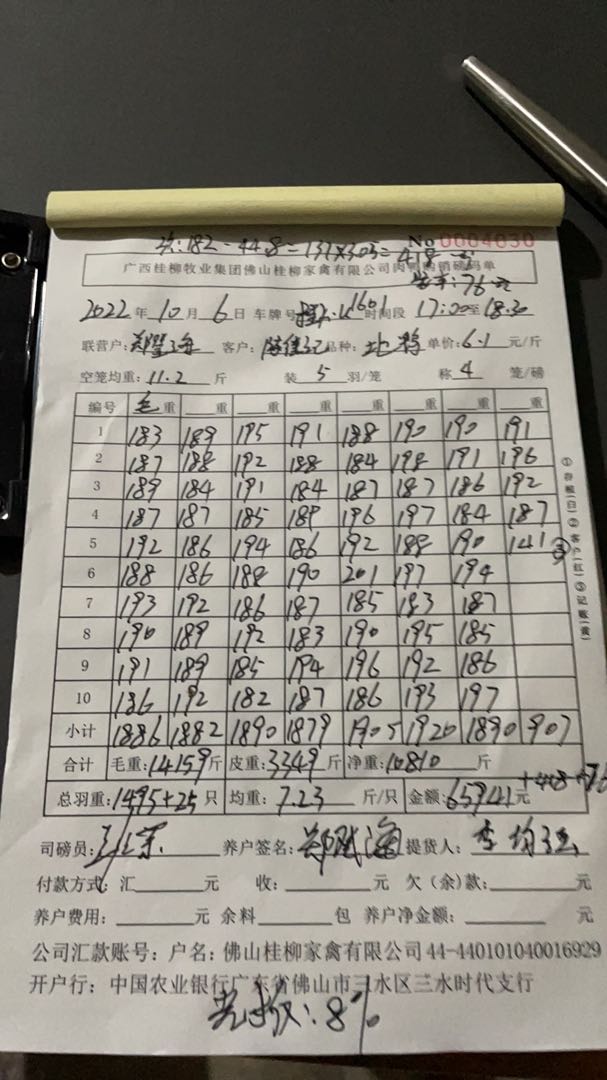 182-44.8=137×3.05=418元
No 0004030
广西桂柳牧业集团佛山桂柳家禽有限公司肉鸭购销磅码单
76元
2022年10月6日 车牌号 K1601 时间段 17:00至18:30
联营户: 客户: 品种: 单价:6.1元/斤
空笼均重:11.2斤 装5羽/笼 称4笼/磅
编号 毛重 重 重 重 重 重 重 重
1 183 189 195 191 188 190 190 191
2 187 188 192 188 184 198 191 196
3 189 184 191 184 187 187 186 192
4 187 187 185 189 196 197 184 187
5 192 186 194 186 192 188 190 141 ③
6 188 186 188 190 201 197 194
7 193 192 186 187 185 183 187
8 190 189 192 183 190 195 185
9 191 189 185 194 196 192 186
10 186 192 182 187 186 193 197
小计 1886 1882 1890 1879 1905 1920 1890 907
合计 毛重:14159斤 皮重:3349斤 净重:10810斤
总羽重:1495+25只 均重:7.23斤/只 金额:65941元 +418+76
司磅员: 养户签名:郑 海 提货人:李
付款方式:汇 元 收: 元 欠(余)款: 元
养户费用: 元 余料 包 养户净金额: 元
公司汇款账号:户名:佛山桂柳家禽有限公司44-440101040016929
开户行:中国农业银行广东省佛山市三水区三水时代支行
8%
①存根(白)②客户(红)③记账(黄)